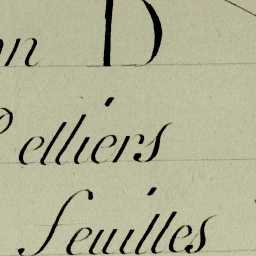 on D
Pelliers
feuilles